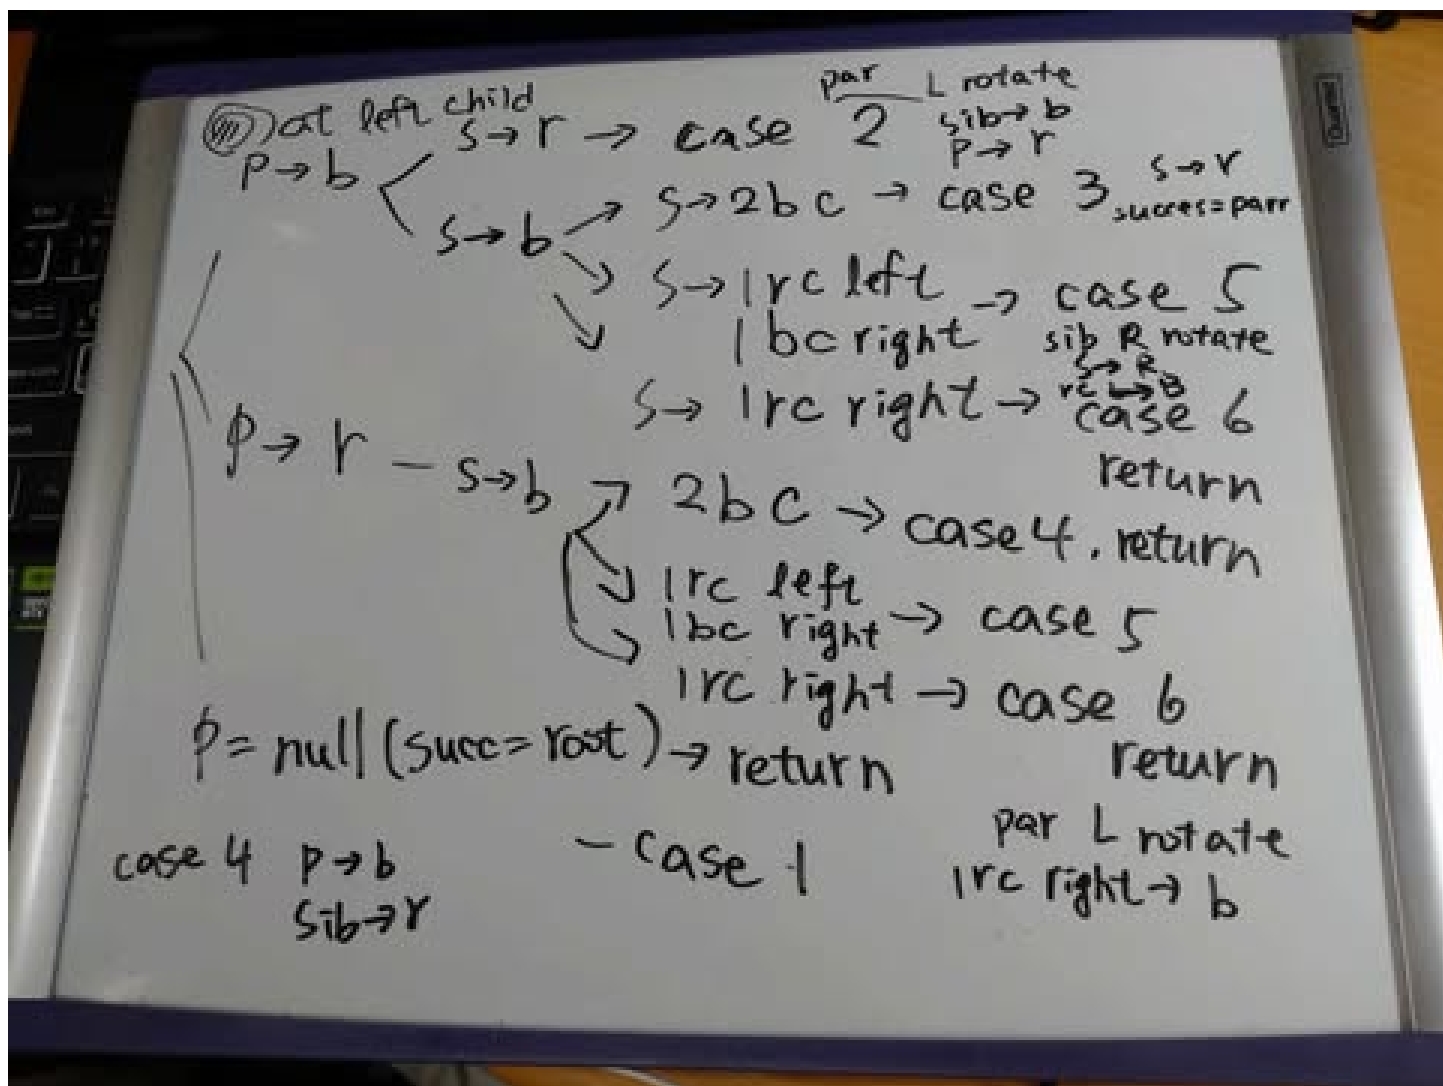 at left child
p→b
s→r → case 2
par L rotate
sib→b
p→r
s→b
s→2bc → case 3
s→r
succes=parr
s→1rc left
1bc right → case 5
sib R rotate
s→R
rc→B
s→ 1rc right → case 6
return
p→r – s→b
2bc → case 4. return
1rc left
1bc right → case 5
1rc right → case 6
return
p=null (succ=root) → return
– case 1
case 4 p→b
sib→r
par L rotate
1rc right→ b
Quartet